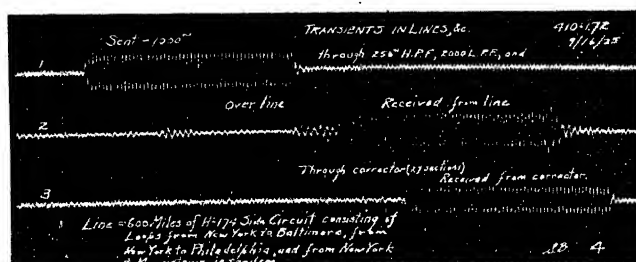 TRANSIENTS IN LINES, &c.
410-1.72
Sent - 1000~
9/16/25
1
through 250~ H.P.F, 2000 L.P.F., and
Over line
Received from line
2
Through corrector (27 sections)
Received from corrector.
3
Line = 600 Miles of H-174 Side Circuit consisting of
Loops from New York to Baltimore, from
New York to Philadelphia, and from New York
4